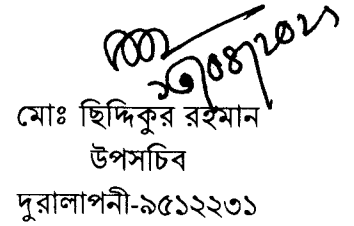 ১৩/০৪/২০২১
মোঃ ছিদ্দিকুর রহমান
উপসচিব
দুরালাপনী-৯৫১২২৩১